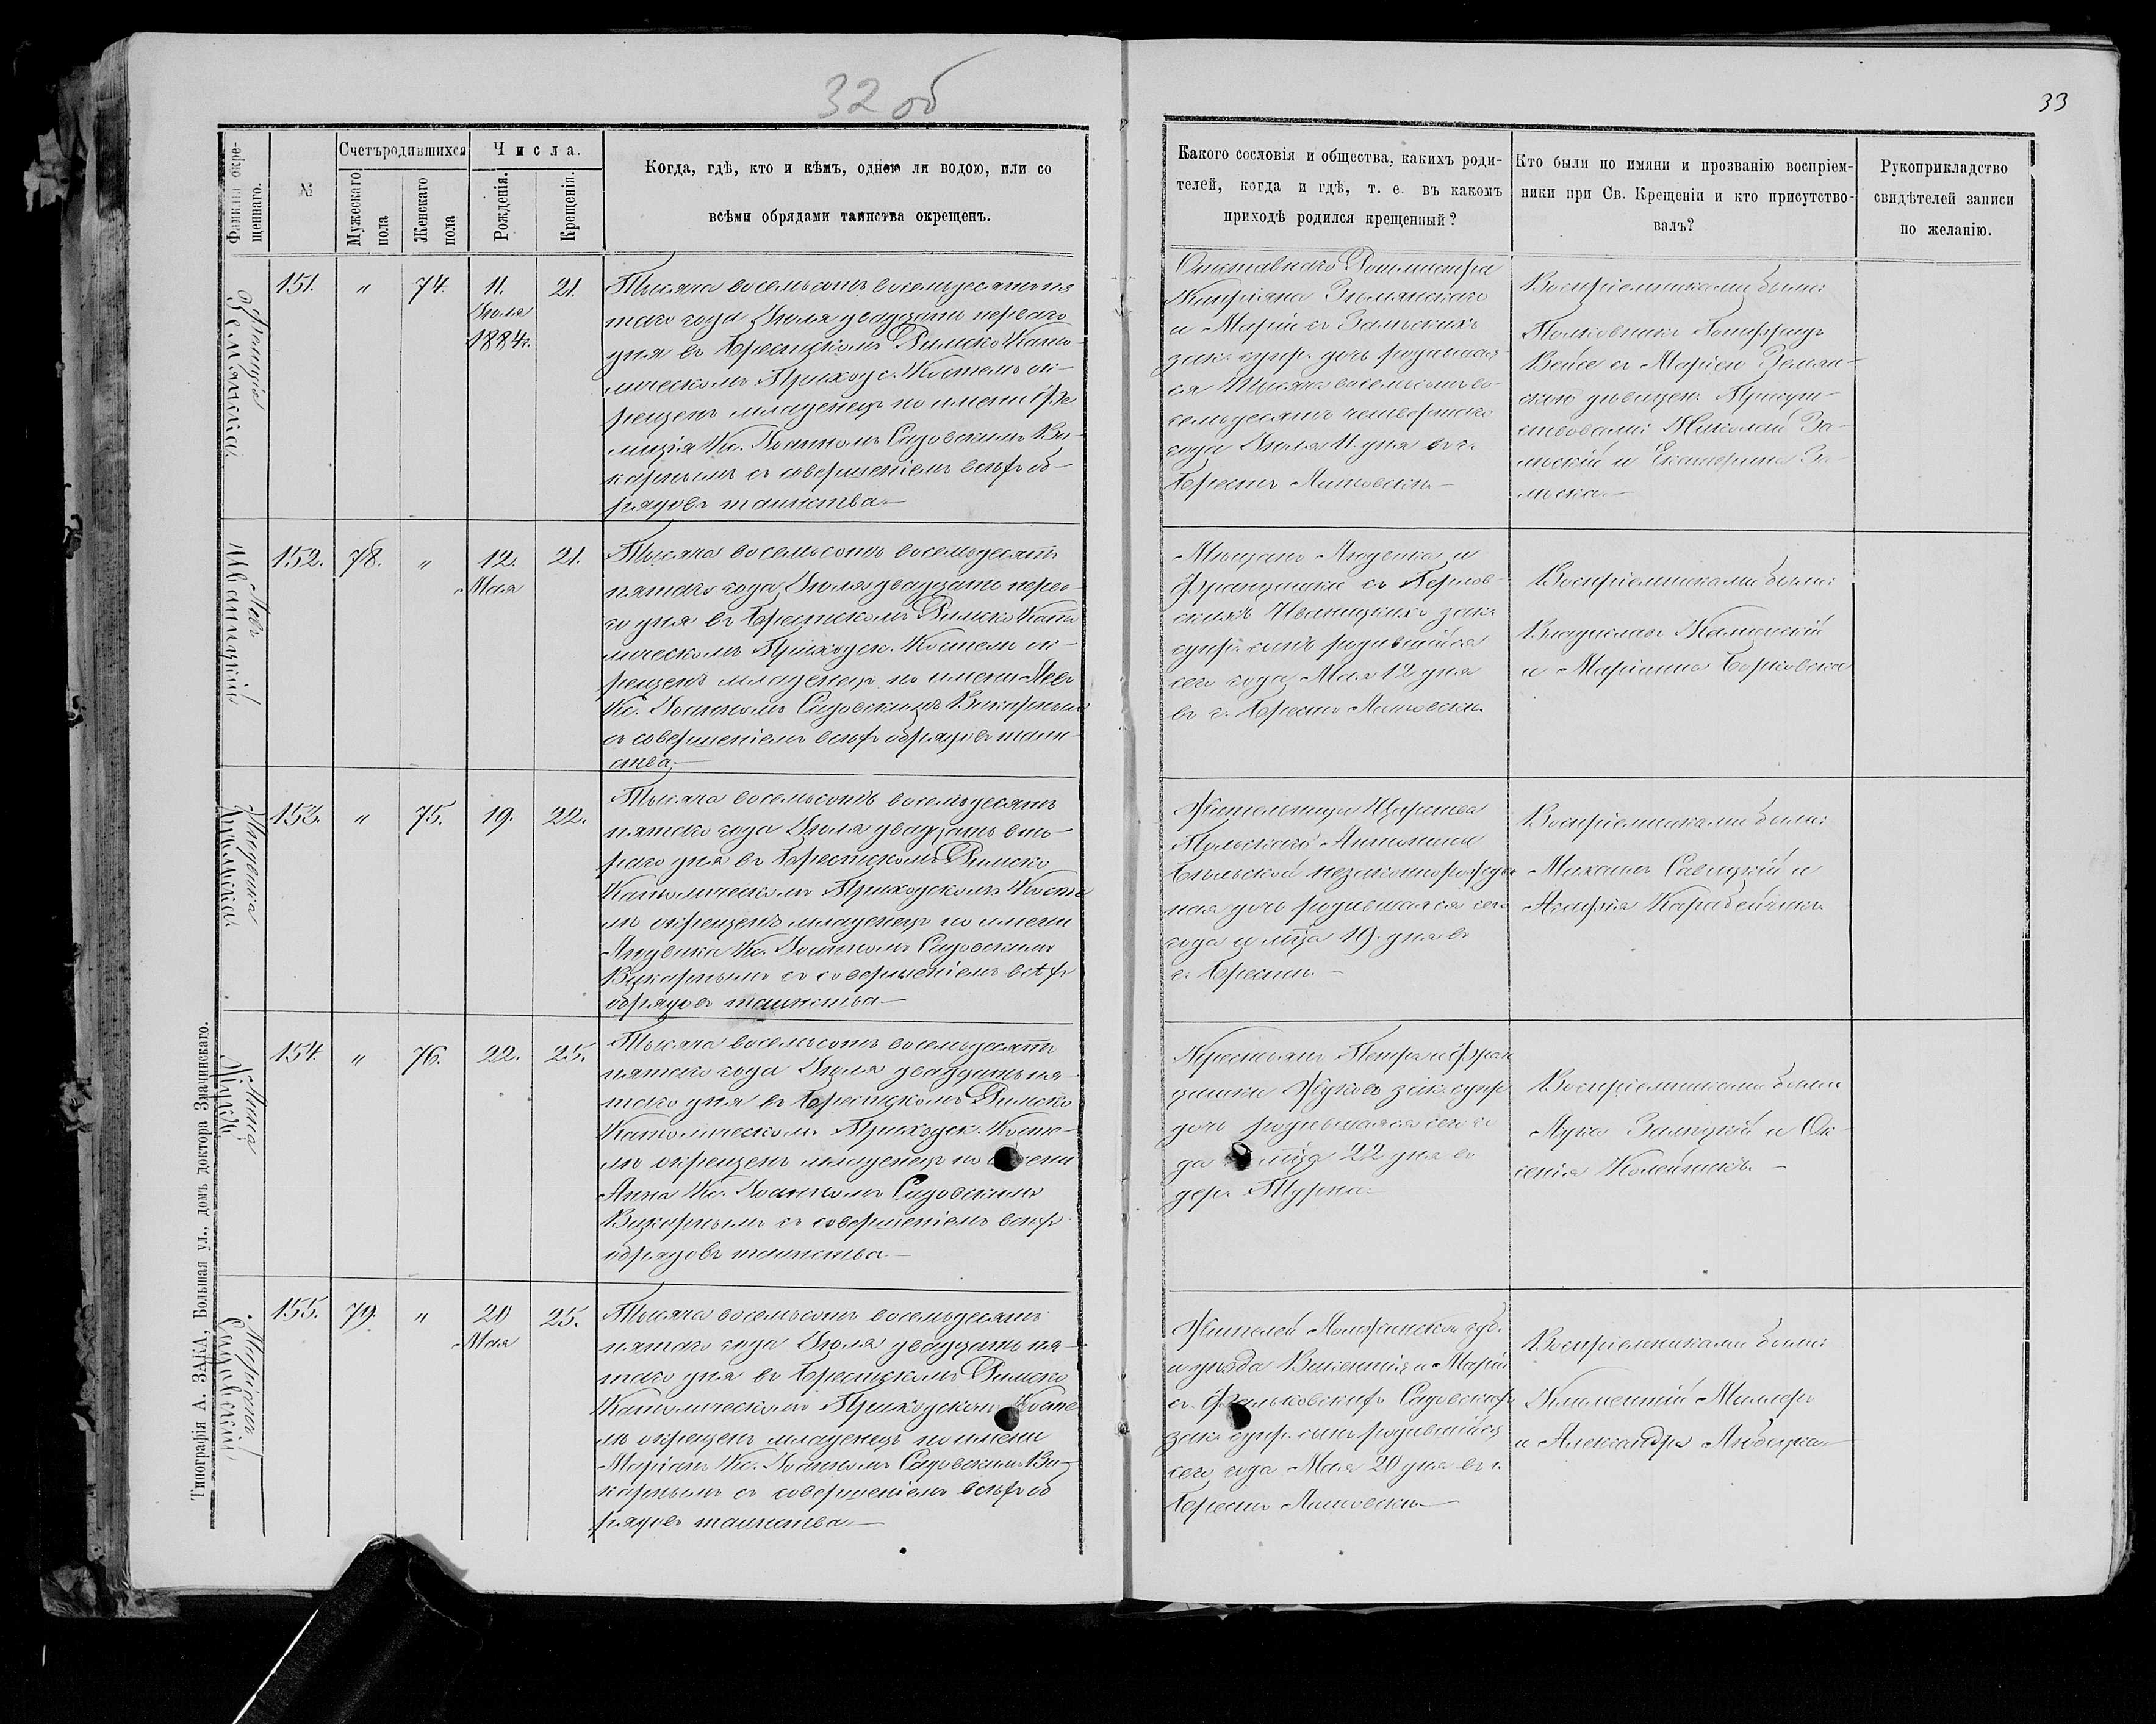 32 об
33
Фамилія окре-
щеннаго.
№
Счетъ родившихся
Мужескаго
пола
Женскаго
пола
Числа.
Рожденія.
Крещенія.
Когда, гдѣ, кто и кѣмъ, одною ли водою, или со
всѣми обрядами таинства окрещенъ.
Какого сословія и общества, какихъ роди-
телей, когда и гдѣ, т. е. въ какомъ
приходѣ родился крещенный?
Кто были по имяни и прозванію воспріем-
ники при Св. Крещеніи и кто присутство-
валъ?
Рукоприкладство
свидѣтелей записи
по желанію.
Фелиція
Землянская
151. " 74. 11. 21.
Іюля
1884г.
Тысяча восемьсотъ восемьдесятъ пя
таго года Іюля двадцать перваго
дня въ Брестскомъ Римско Като-
лическомъ Приход. Костелѣ ок-
рещенъ младенецъ по имени Фе
лиція Кс. Іоанномъ Садовскимъ Ви-
карнымъ съ совершеніемъ всѣхъ об-
рядовъ таинства
Отставнаго Ротмистра
и Маріи съ Зальскихъ
зак. супр. дочь родившая
ся тысяча восемьсотъ во-
семьдесятъ четвертаго
года Іюля 11 дня въ г.
Брестъ Литовскѣ
Воспріемниками были:
Полковникъ Готфридъ
Вейсе съ Маріею Землян-
скою дѣвицею. Присут-
ствовали: Николай За-
льскій и Екатерина За-
льска
Левъ
Иваницкій
152. 78. " 12. 21.
Мая
Тысяча восемьсотъ восемьдесятъ
пятаго года Іюля двадцать перва-
го дня въ Брестскомъ Римско Като
лическомъ Приходск. Костелѣ ок-
рещенъ младенецъ по имени Левъ
Кс. Іоанномъ Садовскимъ Викарнымъ
съ совершеніемъ всѣхъ обрядовъ таин-
ства
Мѣщанъ и
Францишки съ
скихъ Иваницкихъ зак.
супр. сынъ родившійся
сего года Мая 12 дня
въ г. Брестъ Литовскѣ
Воспріемниками были:
Владиславъ
и Маріанна Борковска
Людвика
153. " 75. 19. 22.
Тысяча восемьсотъ восемьдесятъ
пятаго года Іюля двадцать вто-
раго дня въ Брестскомъ Римско
Католическомъ Приходскомъ Косте
лѣ окрещенъ младенецъ по имени
Людвика Кс. Іоанномъ Садовскимъ
Викарнымъ съ совершеніемъ всѣхъ
обрядовъ таинства
Жительницы Царства
Польскаго Антонины
незаконнорожден
ная дочь родившаяся сего
года и м-ца 19. дня въ
г. Брестѣ
Воспріемниками были:
Михаилъ Савицкій и
Агафія
Анна
Жукъ
154. " 76. 22. 25.
Тысяча восемьсотъ восемьдесятъ
пятаго года Іюля двадцать пя-
таго дня въ Брестскомъ Римско
Католическомъ Приходск. Косте-
лѣ окрещенъ младенецъ по имени
Анна Кс. Іоанномъ Садовскимъ
Викарнымъ съ совершеніемъ всѣхъ
обрядовъ таинства
Крестьянъ Петра и Фран
цишки Жуковъ зак. супр.
дочь родившаяся сего го
да и м-ца 22 дня въ
дер. Турна
Воспріемниками были
Лука и Ок-
сенія
Маріанъ
Садовскій
155. 79. " 20 25.
Мая
Тысяча восемьсотъ восемьдесятъ
пятаго года Іюля двадцать пя-
таго дня въ Брестскомъ Римско
Католическомъ Приходскомъ Косте
лѣ окрещенъ младенецъ по имени
Маріанъ Кс. Іоанномъ Садовскимъ Ви-
карнымъ съ совершеніемъ всѣхъ об
рядовъ таинства
Жителей Ломжинской губ.
и уѣзда Викентія и Маріи
съ Садовскихъ
зак. супр. сынъ родившійся
сего года Мая 20 дня въ г.
Брестъ Литовскѣ
Воспріемниками были:
Климентій Миллеръ
и Александра
Типографія А. ЗАКА, Большая ул., домъ доктора Значинскаго.